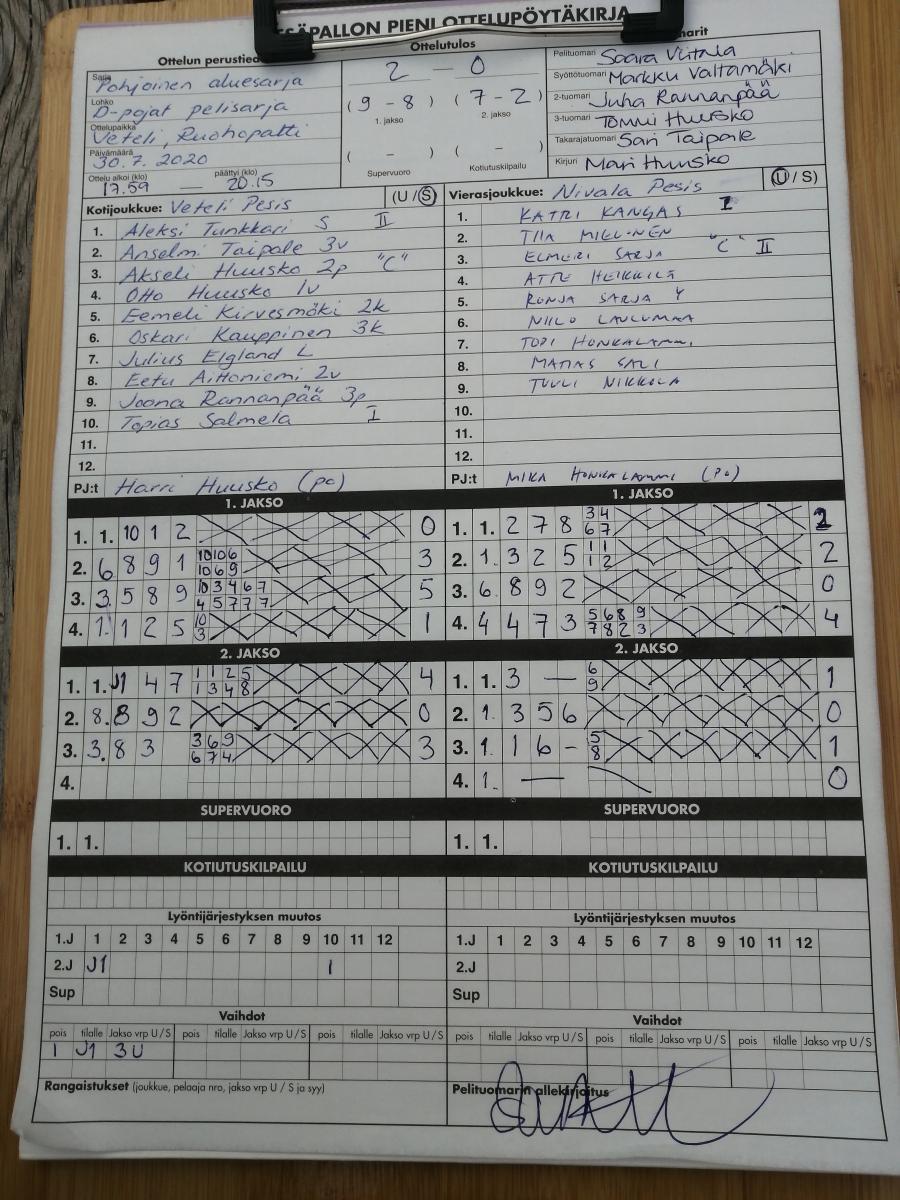 SÄPALLON PIENI OTTELUPÖYTÄKIRJA
Ottelun perustied
Sarja Pohjoinen aluesarja
Lohko D-pojat pelisarja
Ottelupaikka Veteli, Ruohopatti
Päivämäärä 30.7.2020
Ottelu alkoi (klo) päättyi (klo)
17.59 — 20.15
Ottelutulos
2 — 0
(9 - 8) (7 - 2)
1. jakso 2. jakso
( - ) ( - )
Supervuoro Kotiutuskilpailu
marit
Pelituomari Saara Viitala
Syöttötuomari Markku Valtamäki
2-tuomari Juha Rannanpää
3-tuomari Tommi Huusko
Takarajatuomari Sari Taipale
Kirjuri Mari Huusko
Kotijoukkue: Veteli Pesis (U/S)
1. Aleksi Tunkkari S II
2. Anselmi Taipale 3v
3. Akseli Huusko 2p "C"
4. Otto Huusko 1v
5. Eemeli Kirvesmäki 2k
6. Oskari Kauppinen 3k
7. Julius Elgland L
8. Eetu Aittoniemi 2v
9. Joona Rannanpää 3p
10. Topias Salmela I
11.
12.
PJ:t Harri Huusko (po)
Vierasjoukkue: Nivala Pesis (U/S)
1. KATRI KANGAS I
2. TIIA MILLONEN
3. ELMERI SARJA "C" II
4. ATTE HEIKKILÄ
5. RONJA SARJA Y
6. NIILO LAULUMAA
7. TOPI HONKALAMMI
8. MATIAS SALI
9. TUULI NIKKOLA
10.
11.
12.
PJ:t MIKA HONKALAMMI (PO)
1. JAKSO
1. 1. 10 1 2 0
2. 6 8 9 1 10 10 6 3
10 6 9
3. 3. 5 8 9 10 3 4 6 7 5
4 5 7 7 7
4. 1. 1 2 5 10 1
3
2. JAKSO
1. 1. J1 4 7 1 1 2 5 4
1 3 4 8
2. 8. 8 9 2 0
3. 3. 8 3 3 6 9 3
6 7 4
4.
SUPERVUORO
1. 1.
KOTIUTUSKILPAILU
Lyöntijärjestyksen muutos
1.J 1 2 3 4 5 6 7 8 9 10 11 12
2.J J1 1
Sup
Vaihdot
pois tilalle Jakso vrp U/S pois tilalle Jakso vrp U/S pois tilalle Jakso vrp U/S
1 J1 3U
Rangaistukset (joukkue, pelaaja nro, jakso vrp U / S ja syy)
1. JAKSO
1. 1. 2 7 8 3 4 2
6 7
2. 1. 3 2 5 1 1 2
1 2
3. 6. 8 9 2 0
4. 4 4 7 3 5 6 8 9 4
7 8 2 3
2. JAKSO
1. 1. 3 — 6 1
9
2. 1. 3 5 6 0
3. 1. 1 6 - 5 1
8
4. 1. — 0
SUPERVUORO
1. 1.
KOTIUTUSKILPAILU
Lyöntijärjestyksen muutos
1.J 1 2 3 4 5 6 7 8 9 10 11 12
2.J
Sup
Vaihdot
pois tilalle Jakso vrp U/S pois tilalle Jakso vrp U/S pois tilalle Jakso vrp U/S
Pelituomarin allekirjoitus